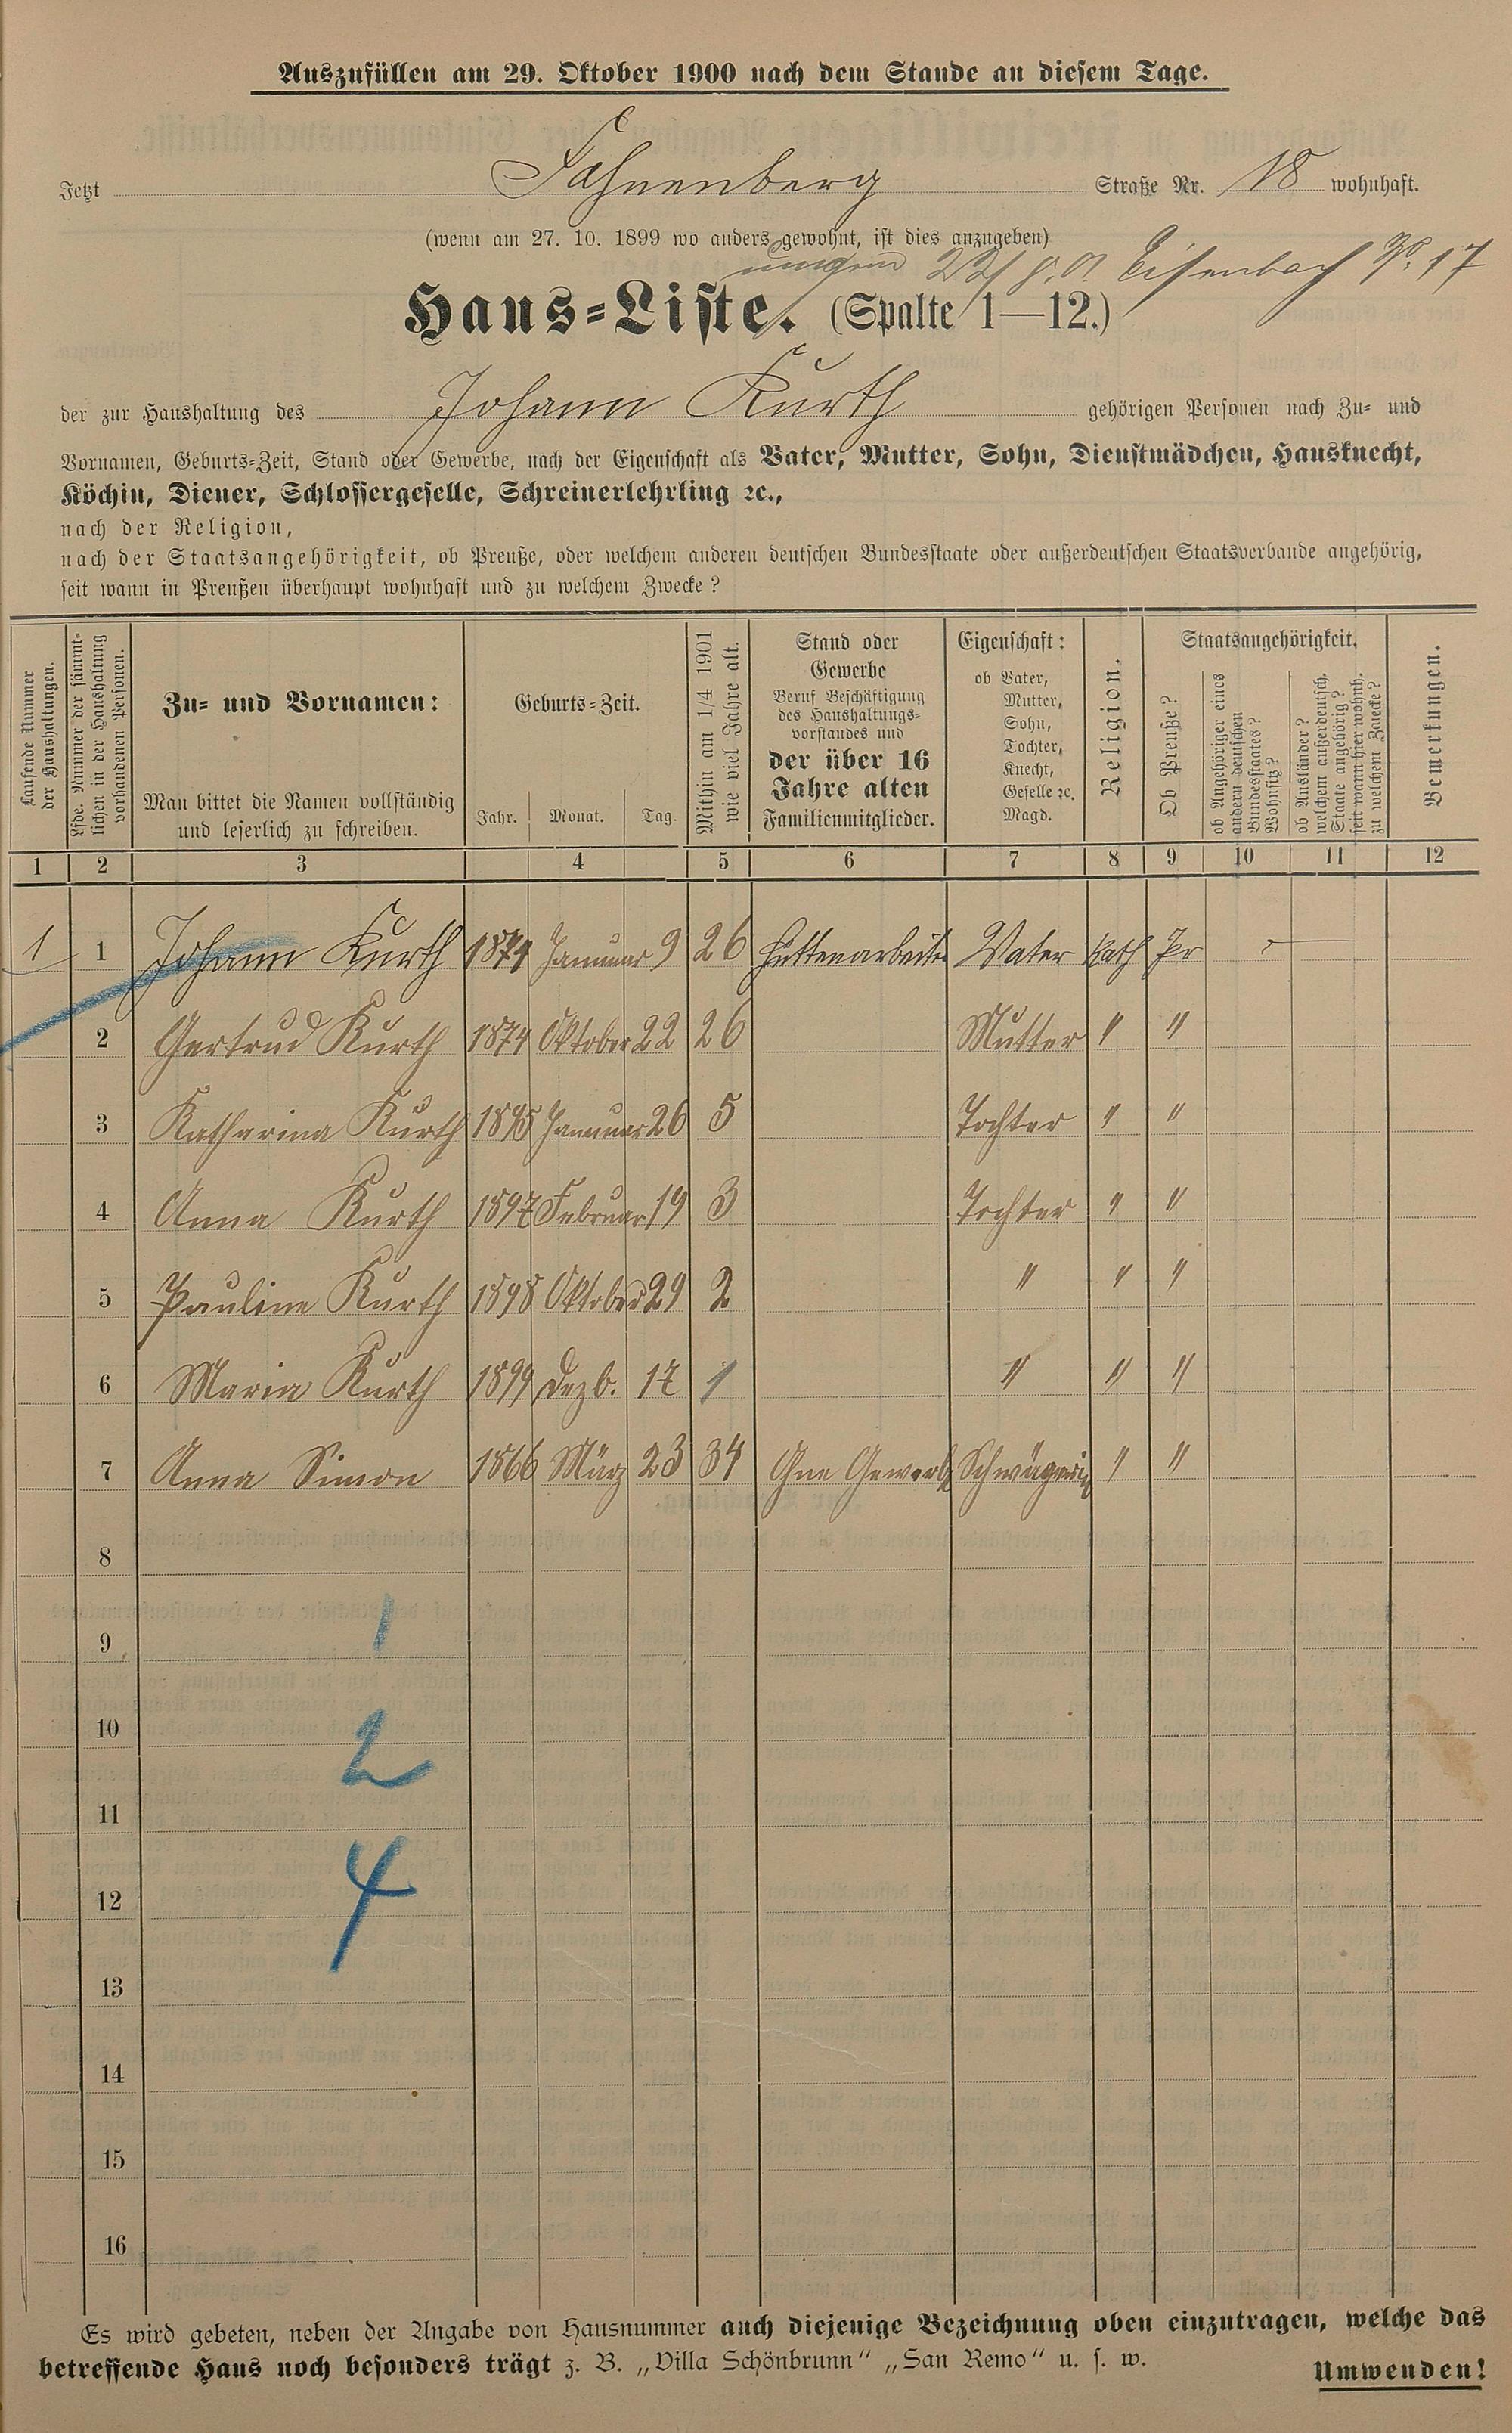 Auszufüllen am 29. Oktober 1900 nach dem Stande an diesem Tage.
Jetzt Fahnenberg Straße Nr. 18 wohnhaft.
(wenn am 27. 10. 1899 wo anders gewohnt, ist dies anzugeben)
Eisenbach No. 17
Haus-Liste. (Spalte 1—12.)
der zur Haushaltung des Johann Kurth gehörigen Personen nach Zu- und
Vornamen, Geburts-Zeit, Stand oder Gewerbe, nach der Eigenschaft als Vater, Mutter, Sohn, Dienstmädchen, Hausknecht,
Köchin, Diener, Schlossergeselle, Schreinerlehrling ꝛc.,
nach der Religion,
nach der Staatsangehörigkeit, ob Preuße, oder welchem anderen deutschen Bundesstaate oder außerdeutschen Staatsverbande angehörig,
seit wann in Preußen überhaupt wohnhaft und zu welchem Zwecke?
Laufende Nummer der Haushaltungen.
Lfde. Nummer der sämmtlichen in der Haushaltung vorhandenen Personen.
Zu- und Vornamen:
Man bittet die Namen vollständig
und leserlich zu schreiben.
Geburts-Zeit.
Jahr. Monat. Tag.
Mithin am 1/4 1901 wie viel Jahre alt.
Stand oder
Gewerbe
Beruf Beschäftigung
des Haushaltungs-
vorstandes und
der über 16
Jahre alten
Familienmitglieder.
Eigenschaft:
ob Vater,
Mutter,
Sohn,
Tochter,
Knecht,
Geselle ꝛc.
Magd.
Religion.
Staatsangehörigkeit.
Ob Preuße?
ob Angehöriger eines andern deutschen Bundesstaates? Wohnsitz?
ob Ausländer? welchem außerdeutsch. Staate angehörig? seit wann hier wohnh. zu welchem Zwecke?
Bemerkungen.
1 2 3 4 5 6 7 8 9 10 11 12
1 1 Johann Kurth 1874 Januar 9 26 Hüttenarbeiter Vater Kath Pr
2 Gertrud Kurth 1874 Oktober 22 26 Mutter " "
3 Katharina Kurth 1895 Januar 26 5 Tochter " "
4 Anna Kurth 1897 Februar 19 3 Tochter " "
5 Pauline Kurth 1898 Oktober 29 2 " " "
6 Maria Kurth 1899 Dezb. 17 1 " " "
7 Anna Simon 1866 März 23 34 Ohne Gewerbe Schwägerin " "
8
9
1
10
2
11
12
4
13
14
15
16
Es wird gebeten, neben der Angabe von Hausnummer auch diejenige Bezeichnung oben einzutragen, welche das
betreffende Haus noch besonders trägt z. B. „Villa Schönbrunn“ „San Remo“ u. s. w.
Umwenden!